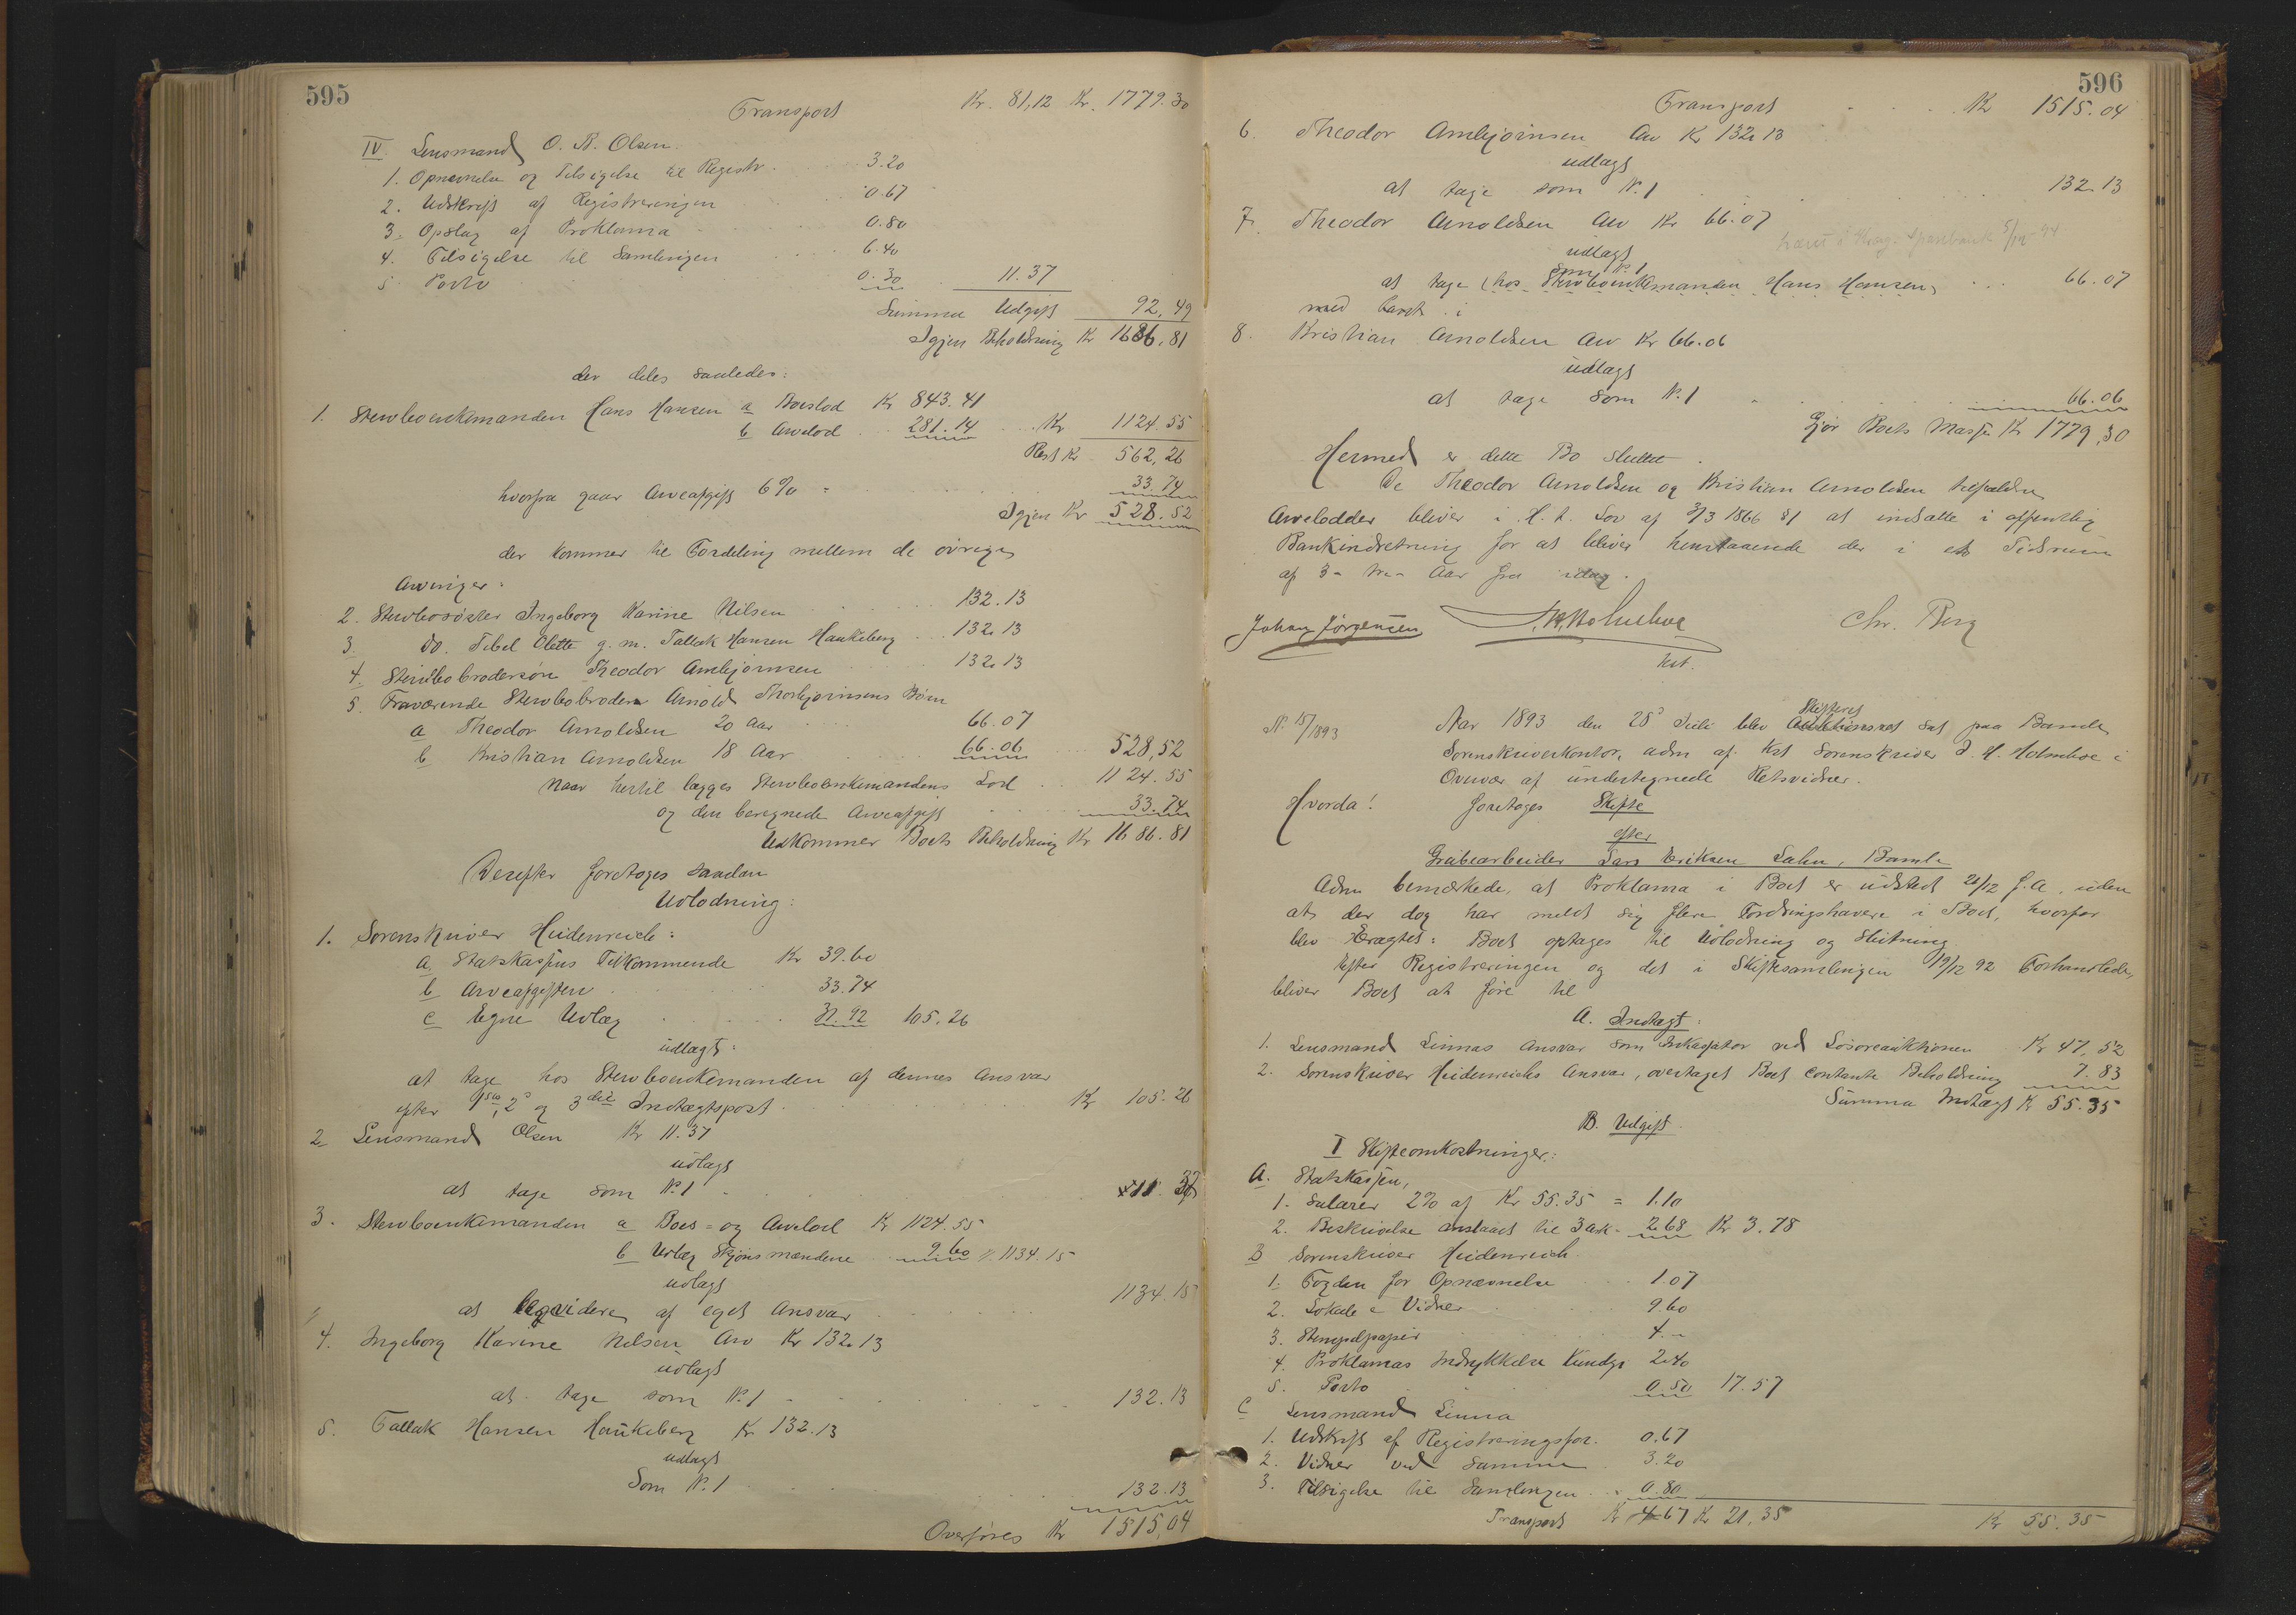 595
Transport Kr. 81,12 Kr. 1779.30
IV. Lensmand O. R. Olsen.
1. Opnævnelse og Tilsigelse til Registr. 3.20
2. Udskrift af Registreringen 0.67
3. Opslag af Proklama 0.80
4. Tilsigelse til Samlingen 6.40
5. Porto 0.30 11.37
Summa Udgift 92,49
Igjen Beholdning Kr 1686,81
der deles saaledes:
1. Stervboenkemanden Hans Hansen a Boeslod Kr 843.41
b Arvelod 281.14 Kr 1124.55
Rest Kr 562,26
hvorfra gaar Arveafgift 6% = 33.74
Igjen Kr 528.52
der kommer til Fordeling mellem de øvrige
Arvinger:
2. Stervbosøster Ingeborg Karine Nilsen 132.13
3. do. Sibel Olette g. m. Tallak Hansen Haukeberg 132.13
4. Stervbobrodersøn Theodor Ambjørnsen 132.13
5. Fraværende Stervbobroder Arnold Thorbjørnsens Børn
a Theodor Arnoldsen 20 Aar 66.07
b Kristian Arnoldsen 18 Aar 66.06 528,52
Naar hertil lægges Stervboenkemandens Lod 1124.55
og den beregnede Arveafgift 33.74
Udkommer Boets Beholdning Kr 1686.81
Derefter foretoges saadan
Udlodning:
1. Sorenskriver Heidenreich:
a. Statskassens Tilkommende Kr 39.60
b Arveafgiften 33.74
c Egne Udlæg 31.92 105.26
udlagt:
at tage hos Stervboenkemanden af dennes Ansvar
efter 1ste, 2d og 3die Indtægtspost Kr 105.26
2 Lensmand Olsen Kr 11.37
udlagt
at tage som N. 1 11.37
3. Stervboenkemanden a Boes- og Arvelod Kr 1124.55
b Udlæg Skjønsmændene 9.60 1134.15
udlagt
at liqvidere af eget Ansvar 1134.15
4. Ingeborg Karine Nilsen Arv Kr 132.13
udlagt
at tage som N. 1 132.13
5. Tallak Hansen Haukeberg Kr 132.13
udlagt
Som N. 1 132.13
Overføres Kr 1515,04
596
Transport Kr 1515.04
6. Theodor Ambjørnsen Arv Kr 132.13
udlagt
at tage som N. 1 132.13
7. Theodor Arnoldsen Arv Kr 66.07
Sparebank 5/12-94
udlagt
som N. 1
at tage (hos Stervboenkemanden Hans Hansen, 66.07
med
8. Kristian Arnoldsen Arv Kr 66.06
udlagt
at tage som N. 1 66.06
Gjør Boets Masse Kr 1779,30
Hermed er dette Bo sluttet.
De Theodor Arnoldsen og Kristian Arnoldsen tilfaldne
Arvelodder bliver i H. t. Lov af 3/3 1866 §1 at indsætte i offentlig
Bankindretning for at blive henstaaende der i et Tidsrum
af 3 - tre - Aar fra idag.
Johan Jørgensen Holmboe Chr. Berg
kst.
N. 15/1893 Aar 1893 den 28d Juli blev Auktionsret Skifteret sat paa Bamle
Sorenskriverkontor, adm af kst Sorenskriver J. H. Holmboe i
Overvær af undertegnede Retsvidner.
Hvorda! foretoges Skifte
efter
Grubearbeider Lars Eriksen Salen, Bamle
Adm bemærkede, at Proklama i Boet er udstedt 21/12 f. A, uden
at der dog har meldt sig flere Fordringshavere i Boet, hvorfor
blev Eragtet: Boet optages til Udlodning og Slutning
Efter Registreringen og det i Skiftesamlingen 19/12 92 Forhandlede
bliver Boet at føre til
A. Indtægt:
1. Lensmand Linnas Ansvar som Inkassator ved Løsøreauktionen Kr 47,52
2. Sorenskriver Heidenreichs Ansvar, overtaget Boets contante Beholdning 7.83
Summa Indtægt Kr 55.35
B. Udgift.
I Skifteomkostninger:
A. Statskassen,
1. Salarer 2% af Kr 55.35 = 1.10
2. Beskrivelse anslaaet til 3 ark - 2.68 Kr 3.78
B Sorenskriver Heidenreich
1. Fogden for Opnævnelse 1.07
2. Lokale & Vidner 9.60
3. Stempelpapir 4.-
4. Proklamas Indrykkelse Kundgj. 2.40
5. Porto 0.50 17.57
C Lensmand Linna
1. Udskrift af Registreringsfor. 0.67
2. Vidner ved samme 3.20
3. Tilsigelse til Samlingen 0.80
Transport Kr 4.67 Kr 21,35 Kr 55.35